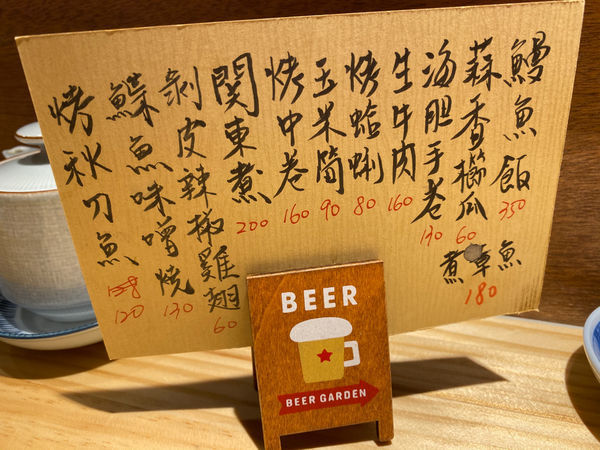 鰻魚飯 350
蒜香櫛瓜 60
煮章魚 180
海胆手卷 130
生牛肉 160
烤蛤蜊 80
玉米筒 90
烤中卷 160
関東煮 200
剝皮辣椒雞翅 60
鰈魚味噌燒 130
烤秋刀魚 120
BEER
BEER GARDEN